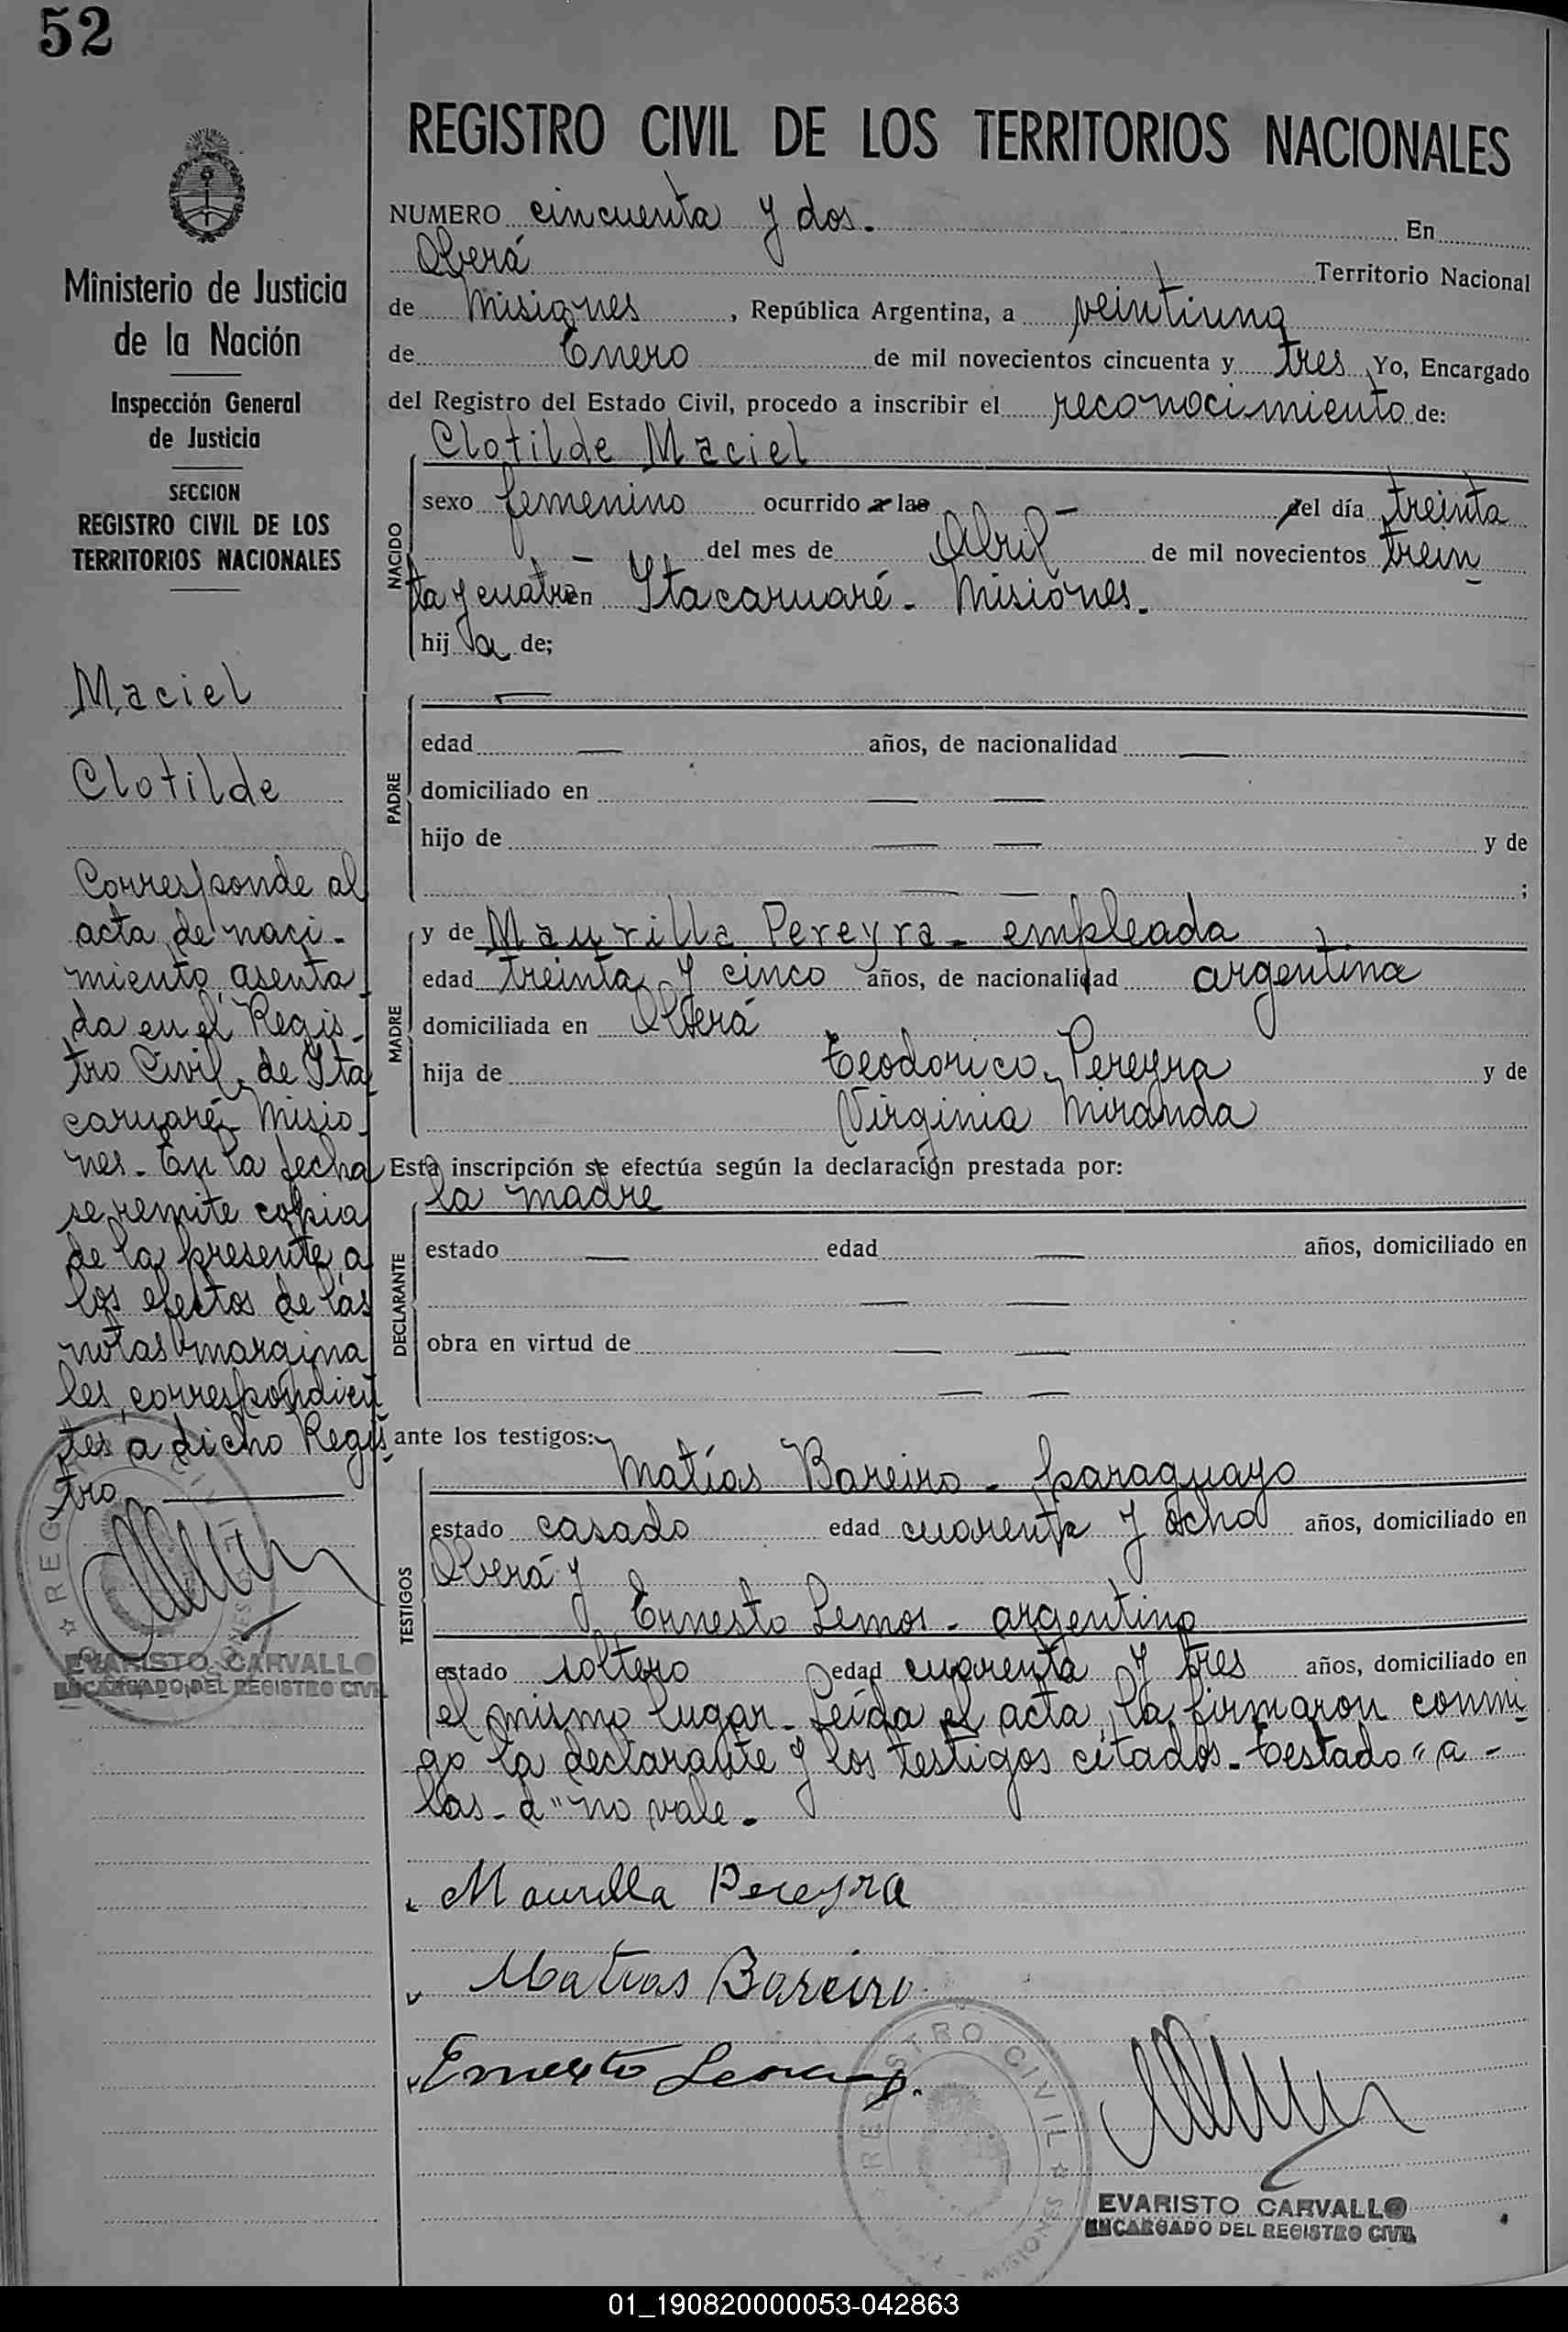 52
Ministerio de Justicia
de la Nación
Inspección General
de Justicia
SECCION
REGISTRO CIVIL DE LOS
TERRITORIOS NACIONALES
Maciel
Clotilde
Corresponde al
acta de naci-
miento asenta
da en el Regis-
tro Civil de Ita
caruaré Misio-
nes. En la fecha
se remite copia
de la presente a
los efectos de las
notas margina
les correspondien
tes a dicho Regis
tro
EVARISTO CARVALLO
ENCARGADO DEL REGISTRO CIVIL
REGISTRO CIVIL DE LOS TERRITORIOS NACIONALES
NUMERO cincuenta y dos. En
Oberá Territorio Nacional
de Misiones, República Argentina, a veintiuno
de Enero de mil novecientos cincuenta y tres Yo, Encargado
del Registro del Estado Civil, procedo a inscribir el reconocimiento de:
Clotilde Maciel
NACIDO
sexo femenino ocurrido a las — del día treinta
— del mes de Abril de mil novecientos trein
ta y cuatro en Itacaruaré - Misiones.
hij a de;
PADRE
—
edad — años, de nacionalidad —
domiciliado en — —
hijo de — — y de
— — ;
MADRE
y de Maurilla Pereyra - empleada
edad treinta y cinco años, de nacionalidad argentina
domiciliada en Oberá
hija de Teodorico Pereyra y de
Virginia Miranda
Esta inscripción se efectúa según la declaración prestada por:
DECLARANTE
la madre
estado — edad — años, domiciliado en
— —
obra en virtud de — —
— —
ante los testigos:
TESTIGOS
Matías Bareiro - paraguayo
estado casado edad cuarenta y ocho años, domiciliado en
Oberá y
Ernesto Lemos - argentino
estado soltero edad cuarenta y tres años, domiciliado en
el mismo lugar - Leída el acta, la firmaron conmi
go la declarante y los testigos citados - Testado "a -
las - d" no vale.
Maurilla Pereyra
Matias Bareiro
Ernesto Lemos
REGISTRO CIVIL
MISIONES
EVARISTO CARVALLO
ENCARGADO DEL REGISTRO CIVIL
01_190820000053-042863